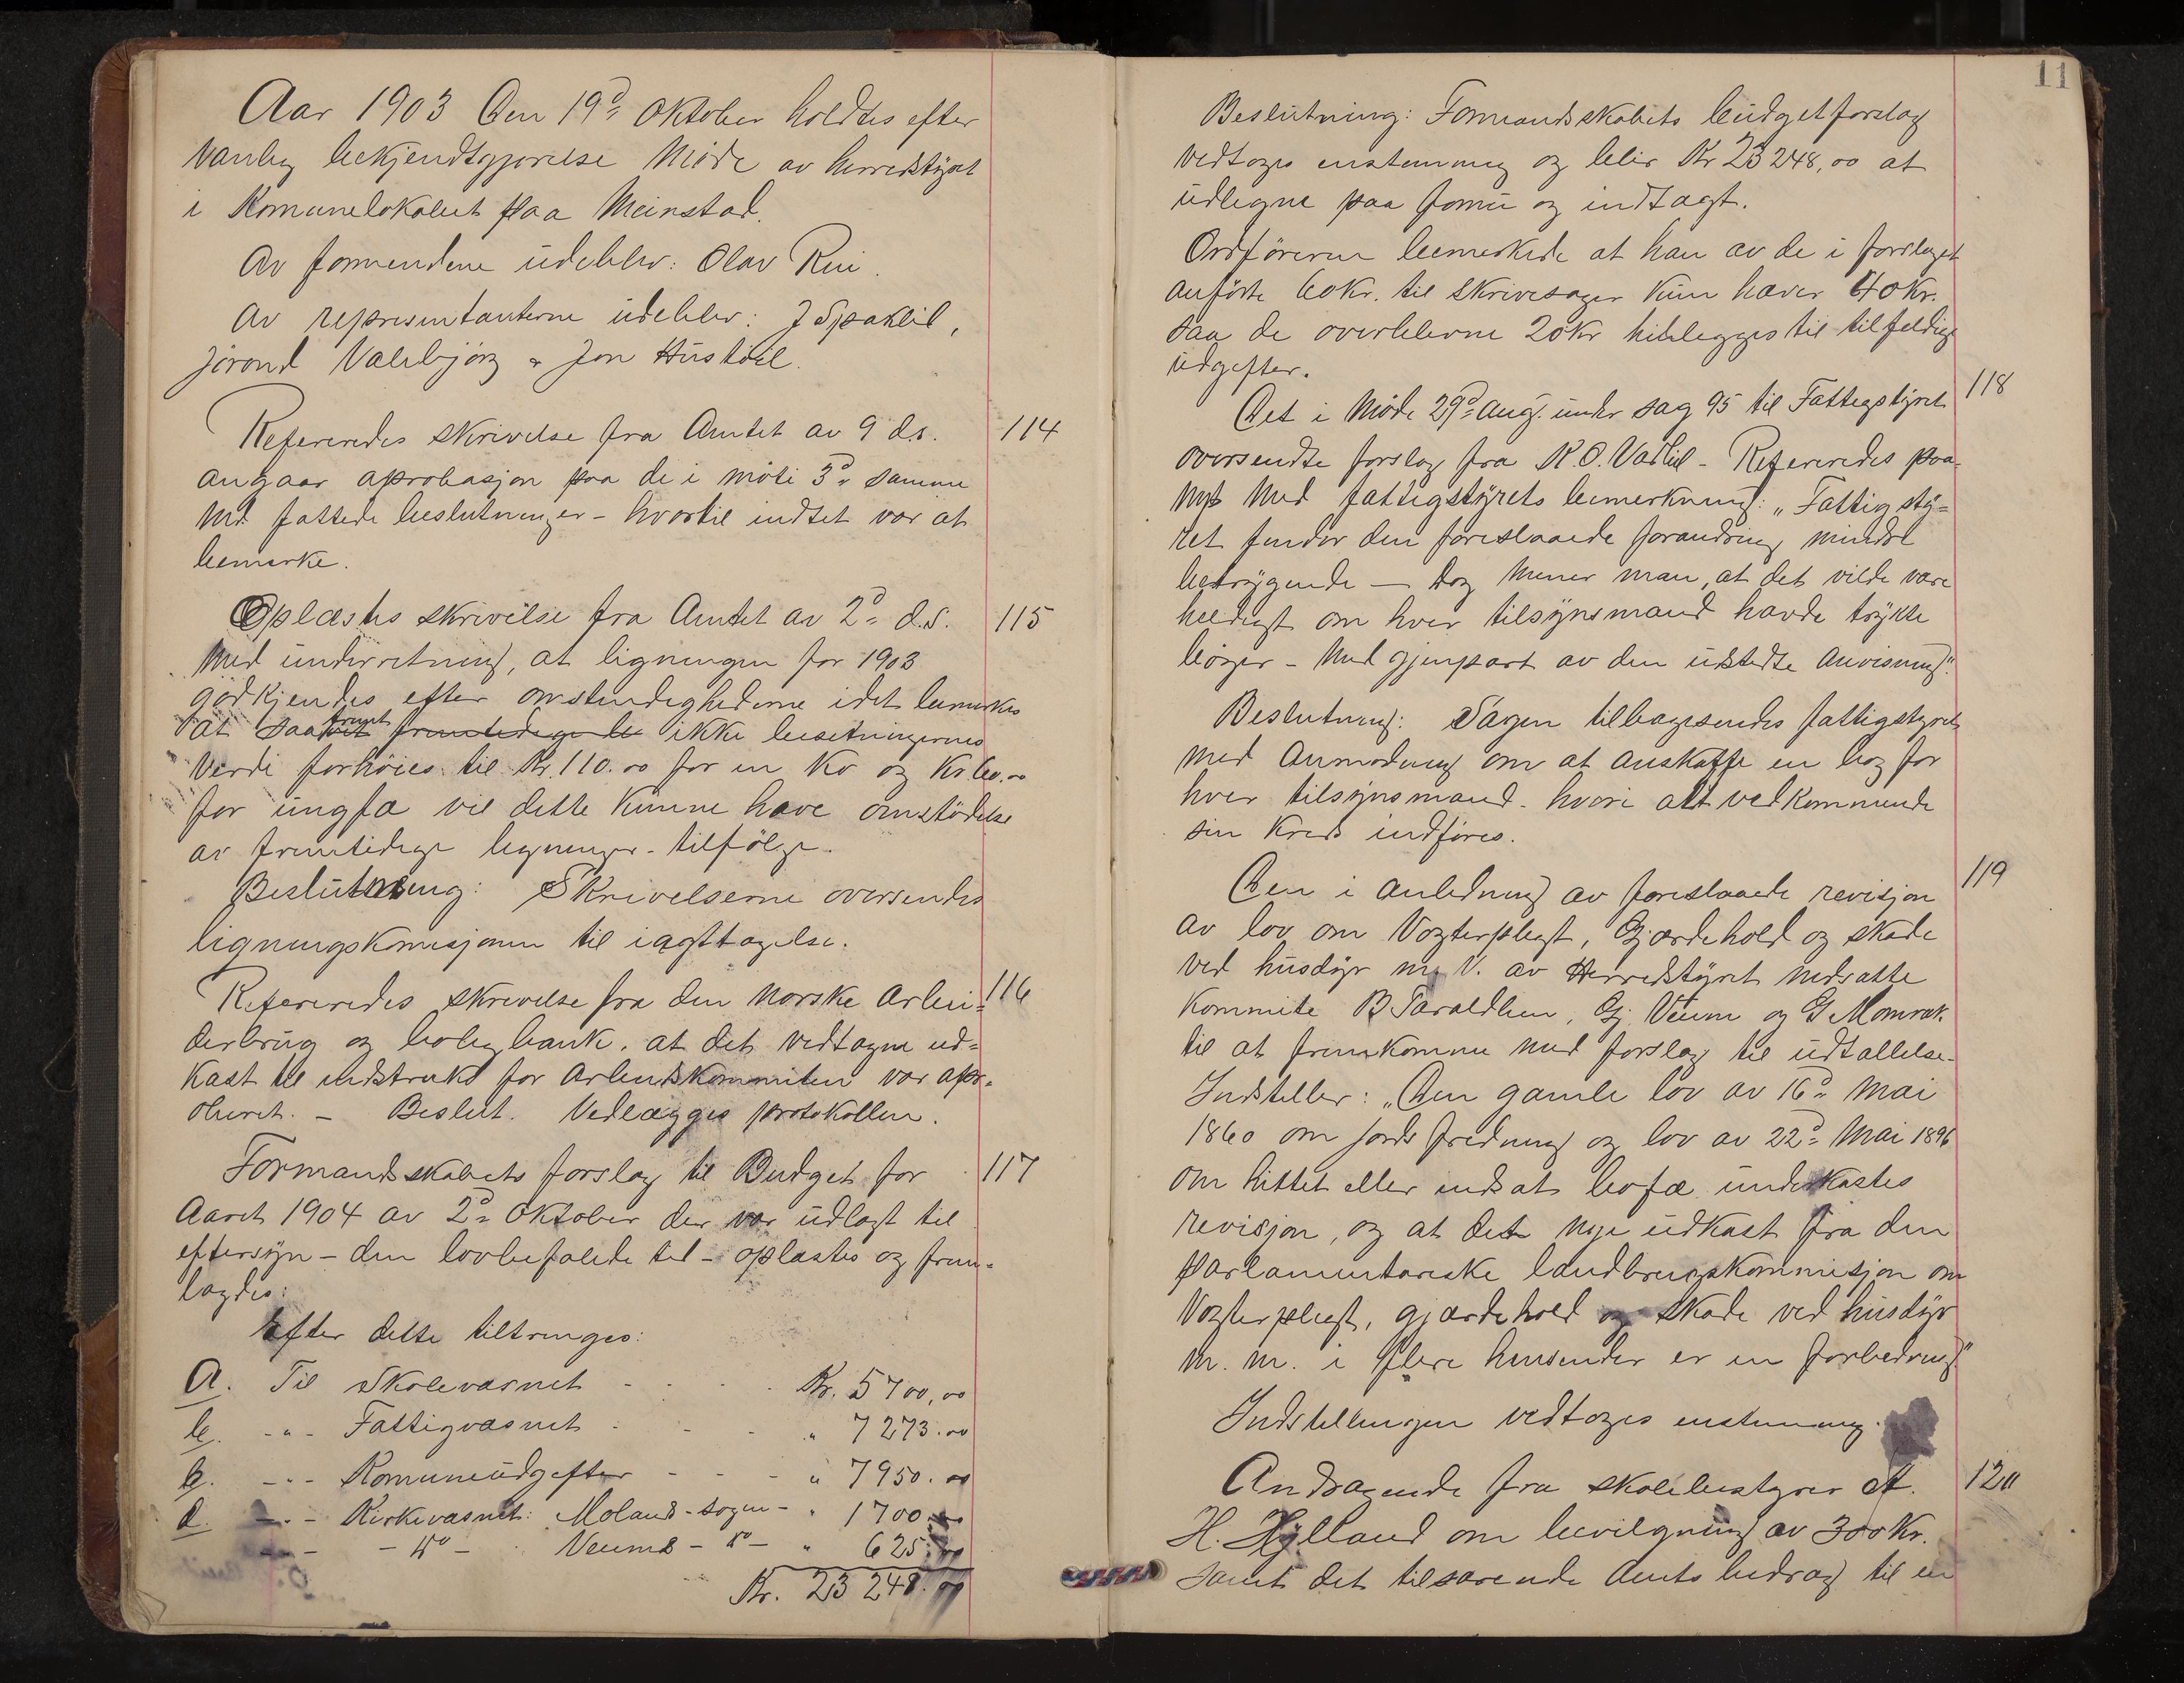 Aar 1903 Den 19d: Oktober holdtes efter
vanlig bekjendtgjørelse Møde av herredstyret
i Komunelokalet paa Meinstad.
Av formendene udeblev: Olav Rui.
Av representanterne udeblev: J Spoklil,
Jorond Valebjørg & Jon Huskiel.
Refereredes skrivelse fra Amtet av 9 ds. 114
angaar aprobasjon paa de i møte 3d: samme
Md. fattede beslutninger - hvortil indtet var at
bemerke.
Oplæstes skrivelse fra Amtet av 2d: d.s. 115
med underretning, at ligningen for 1903
godkjendes efter omstendighederne idet bemerkes
at saafremt ikke besetningernes
verdi forhöies til Kr. 110.00 for en Ko og Kr 60.00
for ungfæ vil dette kunne have omstödelse
av fremtidige ligninger - tilfölge.
Beslutning: Skrivelserne oversendes
ligningskomisjonen til iagttagelse.
Refereredes skrivelse fra den Norske Arbei= 116
derbrug og boligbank. at det vedtagne ud=
kast til indstrukd for Arbeidskommiten var apr=
oberet. - Beslut. Vedlægges protokollen.
Formandskabets forslag til Budget for 117
Aaret 1904 av 2d: Oktober der var udlagt til
eftersyn - den lovbefalede tid - oplæstes og frem=
lagdes:
Efter dette tiltrenges:
A. Til Skolevæsnet - - - - Kr. 5700,00
b. -"- Fattigvæsnet - - - " 7273.00
c. -"- Komuneudgifter - - - " 7950.00
d. -"- Kirkevæsnet: Molands-sogn - " 1700.00
-"- - do - Veums - do - " 625.00
Kr. 23 248.00
11
Beslutning: Formandsskabets budgetforslag
vedtoges enstemmig og blir Kr 23 248,00 at
udlegne paa formu og indtægt.
Ordföreren bemerkede at han av de i forslaget
anförte 60 Kr. til skrivesager kun hæver 40 Kr.
saa de overblevne 20 Kr henlegges til tilfeldige
udgifter.
Det i Möde 29d: aug. under sag 95 til Fattegstyret 118
oversendte forslag fra K. O. Vadlil - Refereredes paa
nyt med fattigstyrets bemerkning: „Fattig sty=
ret finder den foreslaaede forandring mindre
betrygende — dog mener man, at det vilde være
heldigt om hver tilsynsmand havde trykte
böger - med gjenpart av den udstedte Anvisning".
Beslutning: Sagen tilbagesendes fattigstyret
med Anmodning om at anskaffe en bog for
hver tilsynsmand - hvori alt vedkommende
sin Kreds indföres.
Den i anledning av foreslaaede revisjon 119
av lov om Vogterpligt, Gjærdehold og skade
ved husdyr m. V. av Herredstyret nedsatte
Kommite B Taraldlien, Gj. Veum og G Momrak
til at fremkomme med forslag til udtallelse -
Indstiller: „Den gamle lov av 16d: Mai
1860 om jords fredning og lov av 22d: Mai 1896
om hittet eller indsat bofæ underkastes
revisjon, og at det nye udkast fra den
parlamentariske landbrugskommisjon om
Vogterpligt, gjærdehold og skade ved husdyr
m. m. i flere hensender er en forbedring"
Indstillingen vedtoges enstemmig.
Andragende fra skolebestyrer 120
H. Hylland om bevilgning av 300 Kr.
samt det tilsvarende Amtsbidrag til en